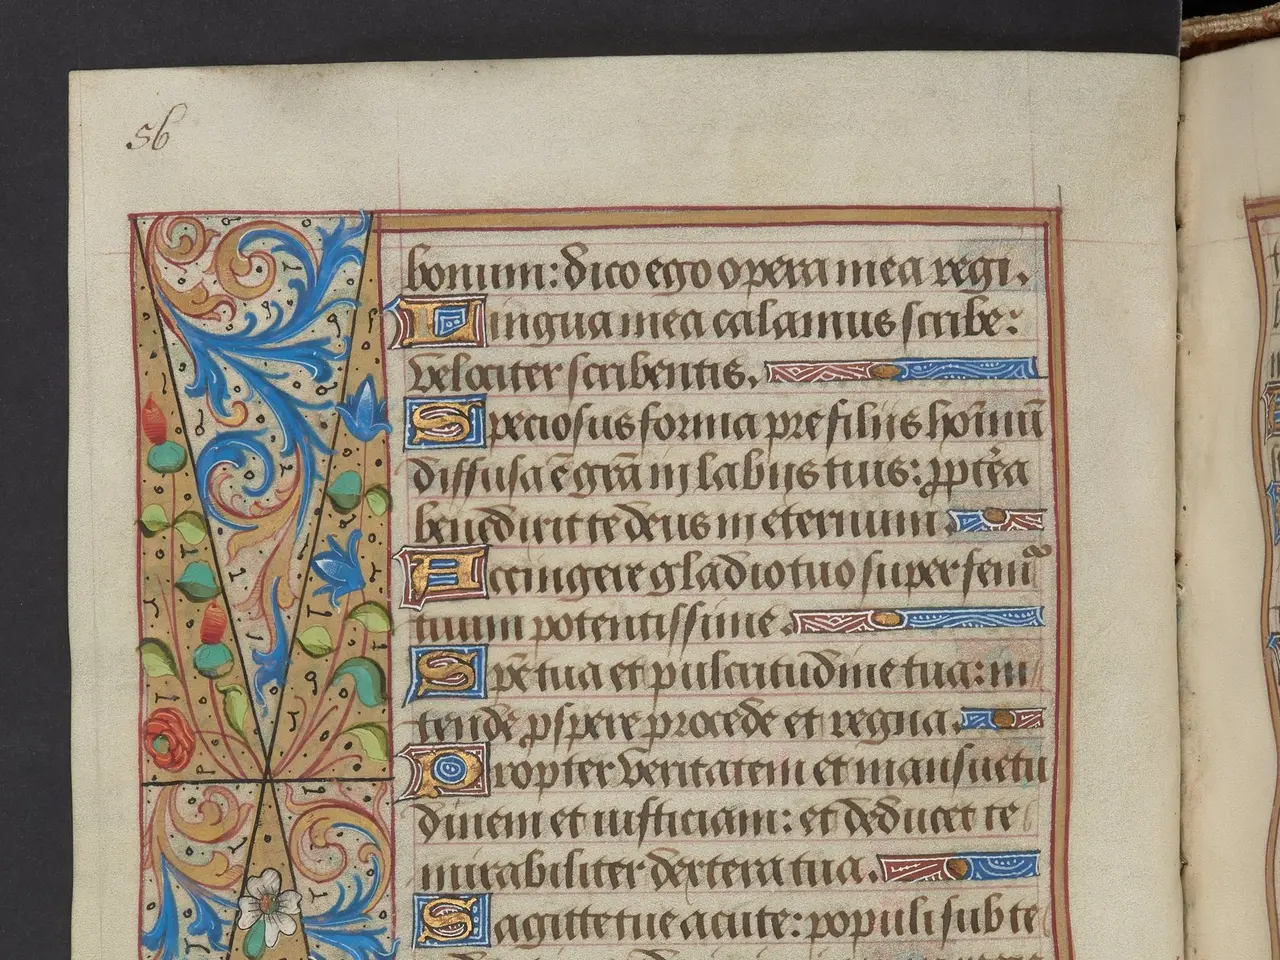 56
bonum: dico ego opera mea regi.
Lingua mea calamus scribe:
velociter scribentis.
Speciosus forma pre filiis hoīnū
diffusa ē grā in labiis tuis: ꝓpterea
benedixit te deus in eternum.
Accingere gladio tuo super femꝰ
tuum potentissime.
Spē tua et pulcritudine tua: in
tende ꝓspere procede et regna.
Propter veritatem et mansuetu
dinem et iusticiam: et deducet te
mirabiliter dextera tua.
Sagitte tue acute: populi sub te